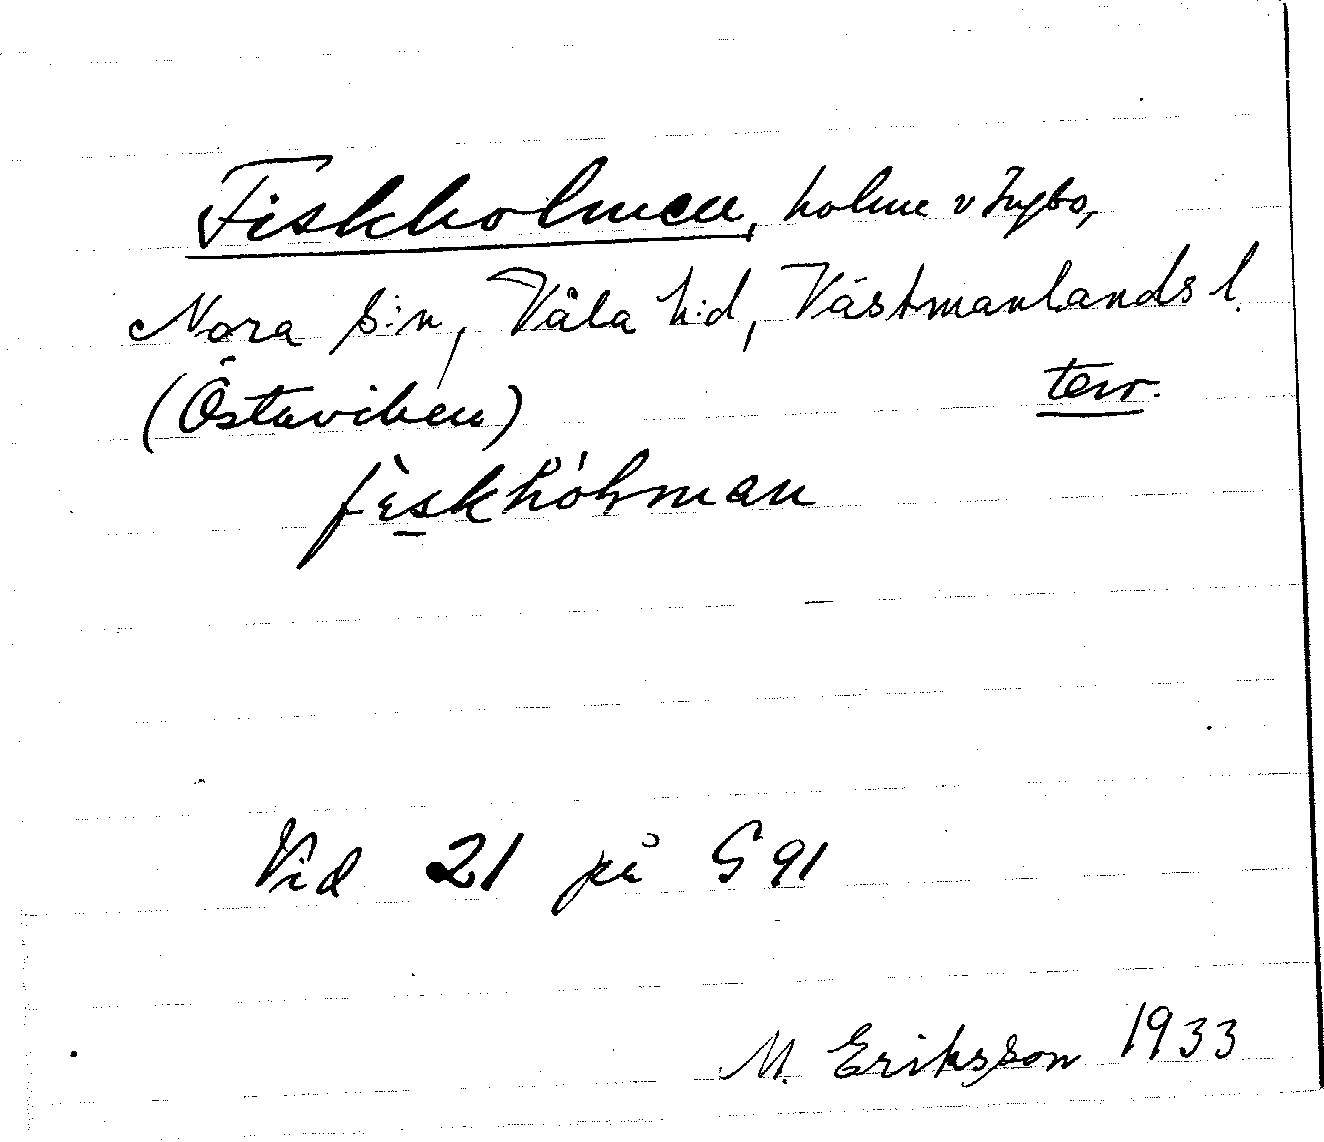 Fiskholmen, holme v Ingbo,
Nora s:n, Våla h:d, Västmanlands l.
(Östaviken) terr.
fi̱skhólman
Vid 21 på G 91
M. Eriksson 1933